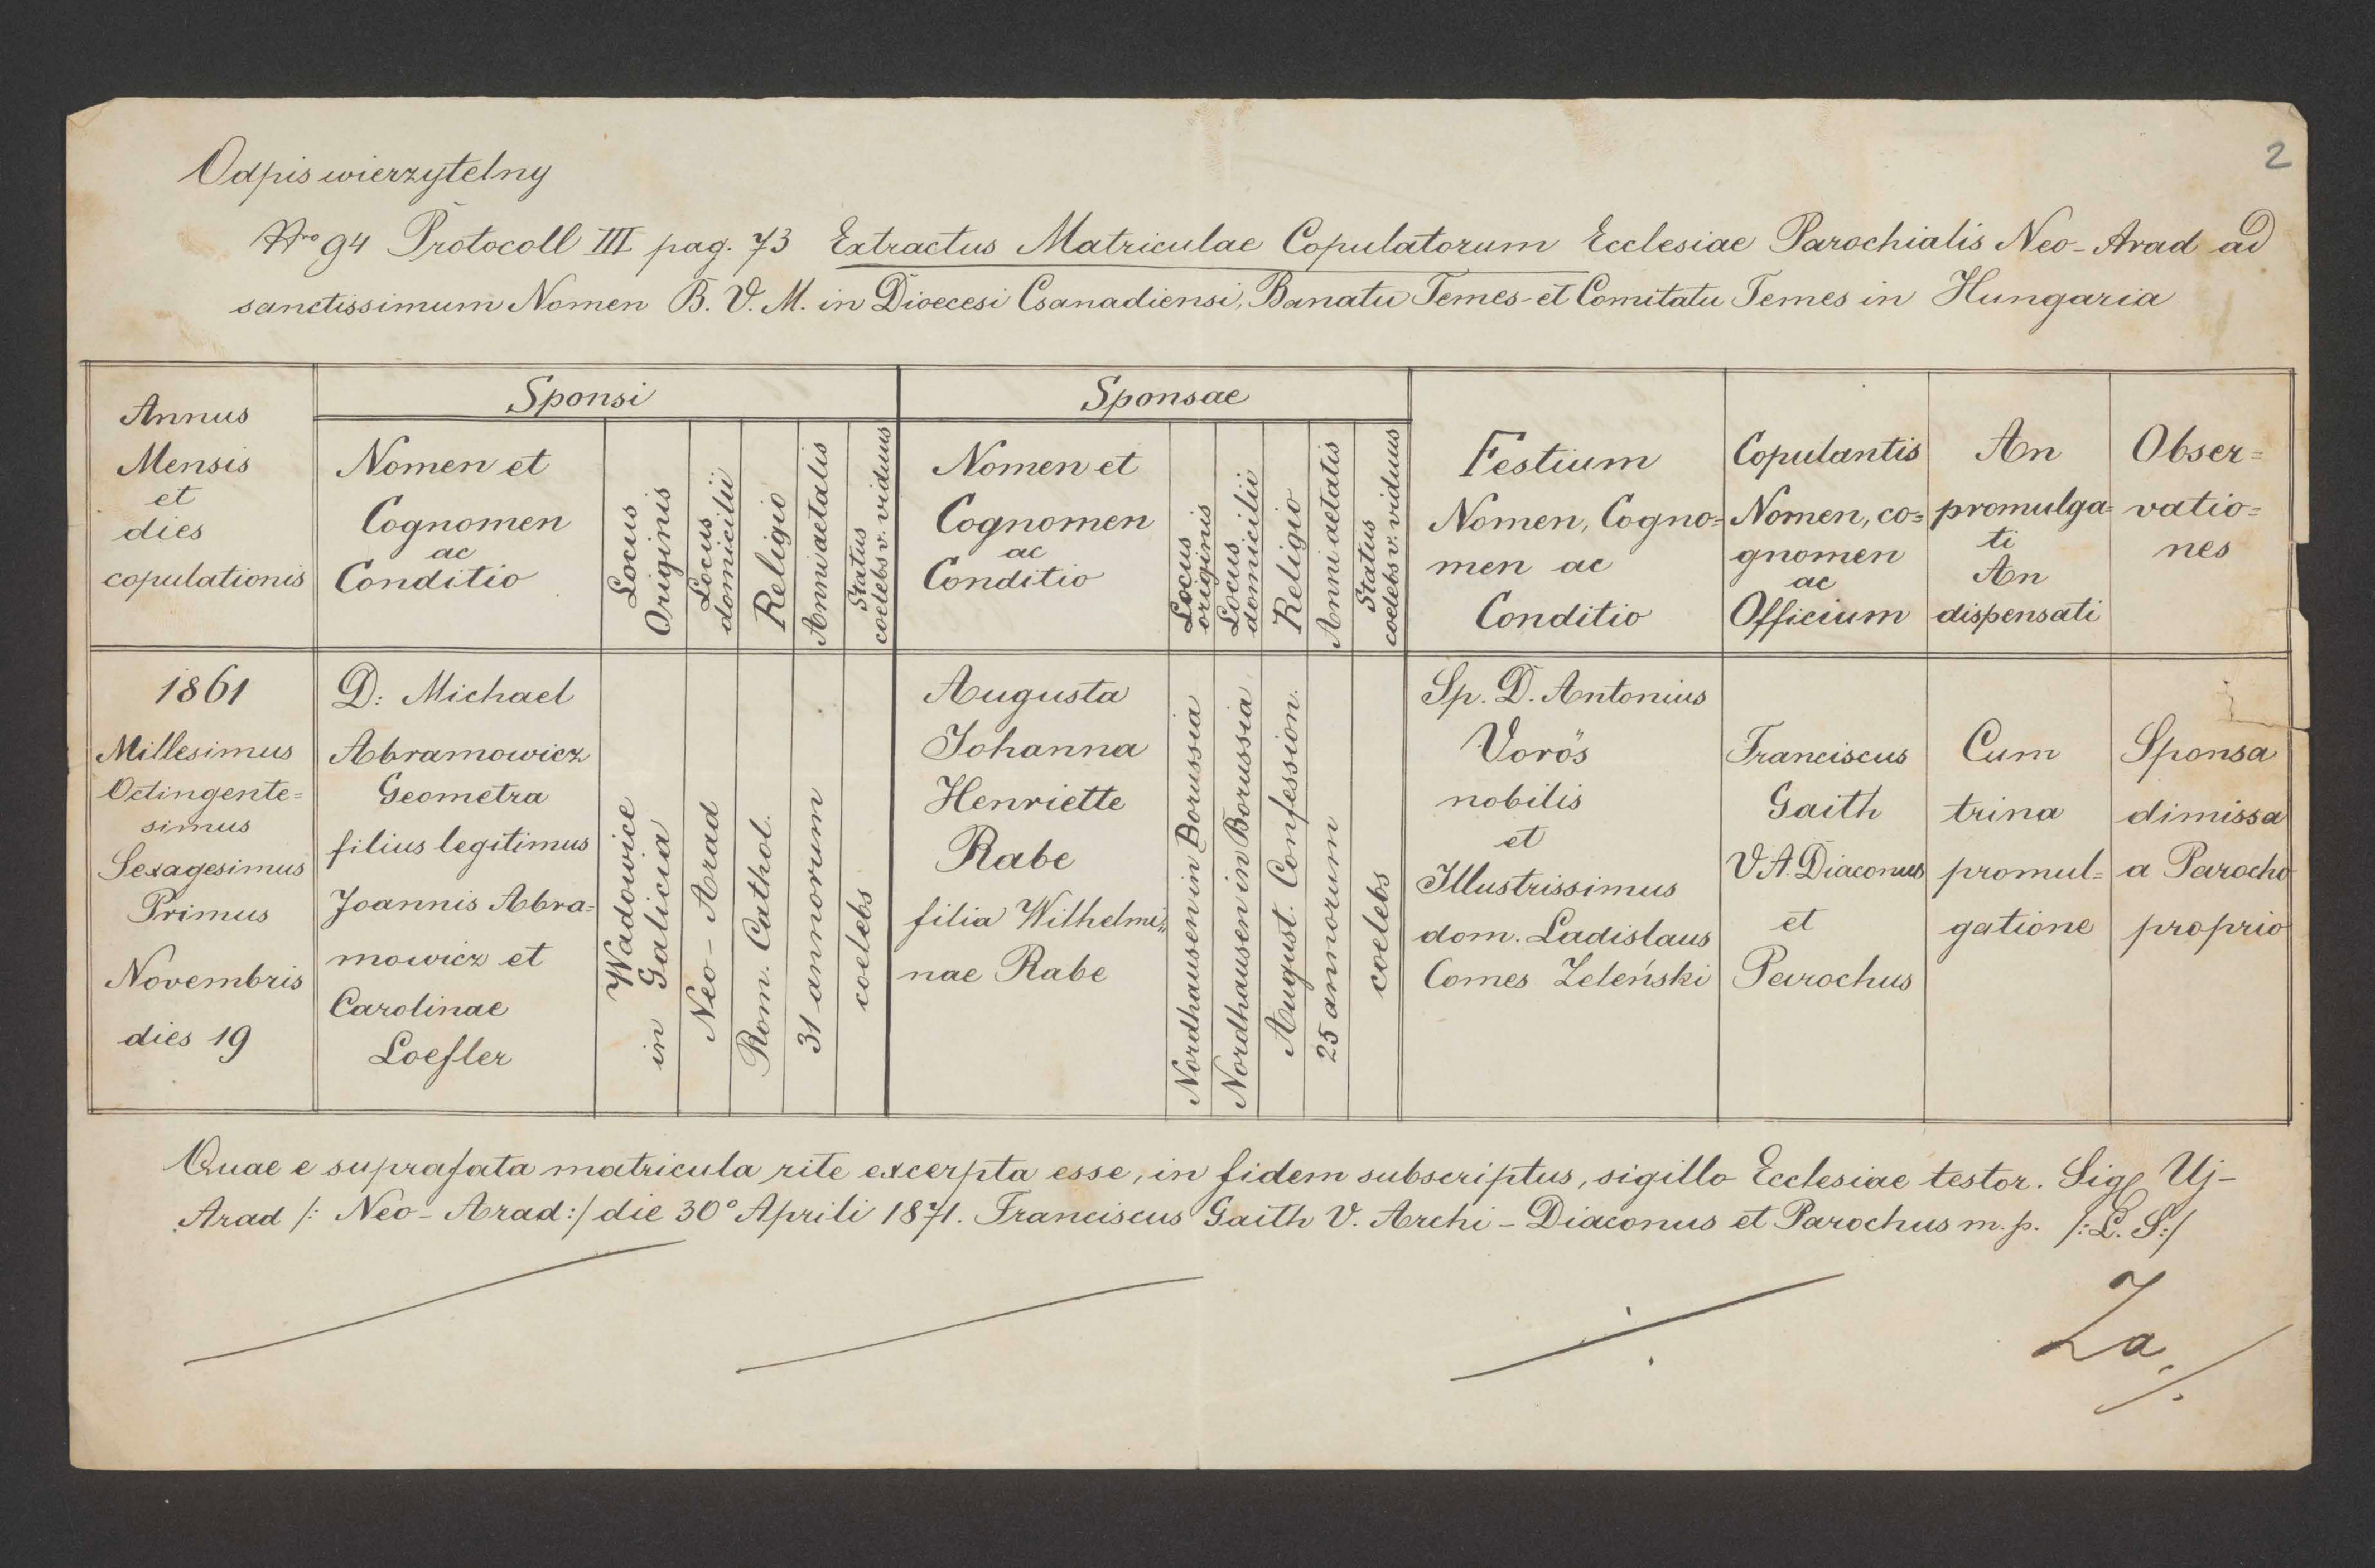 2
Odpis wierzytelny
Nro 94 Protocoll III pag. 73 Extractus Matriculae Copulatorum Ecclesiae Parochialis Neo-Arad ad
sanctissimum Nomen B. V. M. in Dioecesi Csanadiensi, Banatu Temes- et Comitatu Temes in Hungaria
Annus
Mensis
et
dies
copulationis
Sponsi
Nomen et
Cognomen
ac
Conditio
Locus
Originis
Locus
domicilii
Religio
Anni aetatis
Status
coelebs v. viduus
Sponsae
Nomen et
Cognomen
ac
Conditio
Locus
originis
Locus
domicilii
Religio
Anni aetatis
Status
coelebs v. viduus
Festium
Nomen, Cogno=
men ac
Conditio
Copulantis
Nomen, co=
gnomen
ac
Officium
An
promulga=
ti
An
dispensati
Obser=
vatio=
nes
1861
Millesimus
Octingente=
simus
Sexagesimus
Primus
Novembris
dies 19
D: Michael
Abramowicz
Geometra
filius legitimus
Joannis Abra=
mowicz et
Carolinae
Loefler
Wadowice
in Galicia
Neo-Arad
Rom. Cathol.
31 annorum
coelebs
Augusta
Johanna
Henriette
Rabe
filia Wilhelmi„
nae Rabe
Nordhausen in Borussia
Nordhausen in Borussia
August. Confession.
25 annorum
coelebs
Sp. D. Antonius
Vorös
nobilis
et
Illustrissimus
dom. Ladislaus
Comes Zeleński
Franciscus
Gaith
V. A. Diaconus
et
Parochus
Cum
trina
promul=
gatione
Sponsa
dimissa
a Parocho
proprio
Quae e suprafata matricula rite excerpta esse, in fidem subscriptus, sigillo Ecclesiae testor. Sigl Uj-
Arad /: Neo-Arad:/ die 30° Aprili 1871. Franciscus Gaith V. Archi-Diaconus et Parochus m. p. /: L. S:/
Za